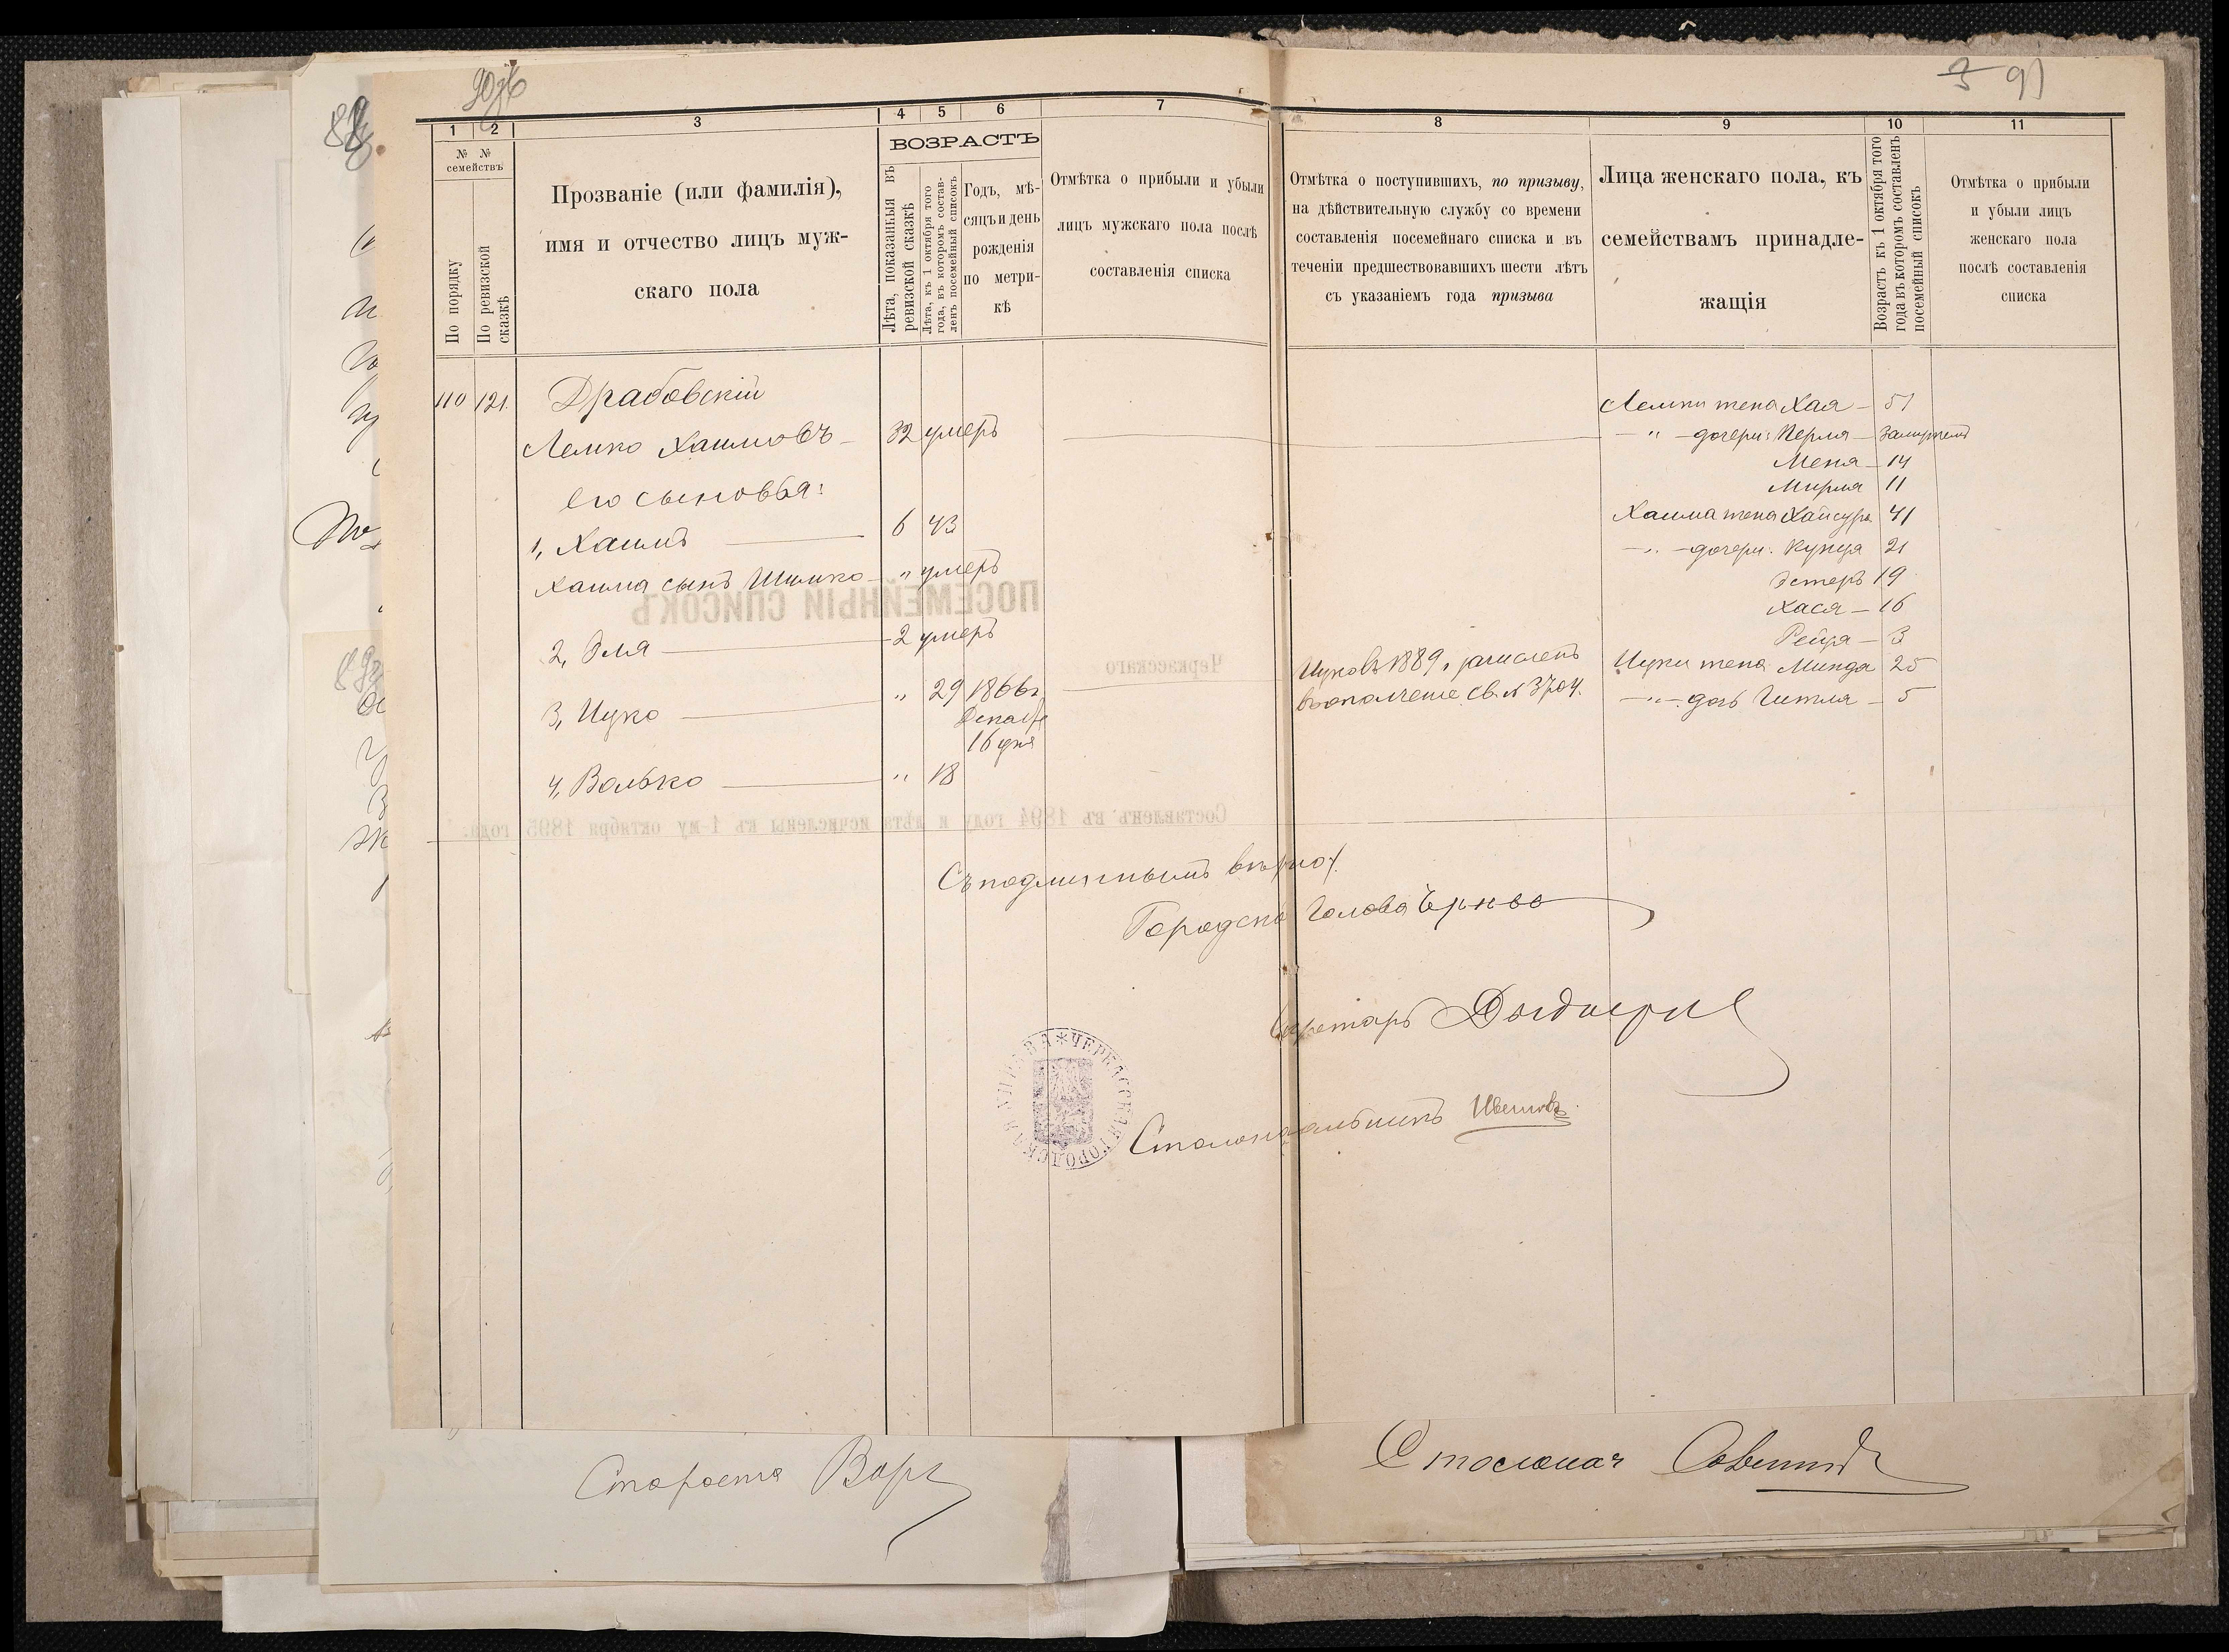 3 91
1 2 3 4 5 6 7 8 9 10 11
№ № семействъ
По порядку
По ревизской сказкѣ
Прозваніе (или фамилія),
имя и отчество лицъ муж-
скаго пола
ВОЗРАСТЪ
Лѣта, показанныя въ
ревизской сказкѣ
Лѣта, къ 1 октября того
года, въ которомъ состав-
ленъ посемейный списокъ
Годъ, мѣ-
сяцъ и день
рожденія
по метри-
кѣ
Отмѣтка о прибыли и убыли
лицъ мужскаго пола послѣ
составленія списка
Отмѣтка о поступившихъ, по призыву,
на дѣйствительную службу со времени
составленія посемейнаго списка и въ
теченіи предшествовавшихъ шести лѣтъ
съ указаніемъ года призыва
Лица женскаго пола, къ
семействамъ принадле-
жащія
Возрастъ къ 1 октября того
года въ которомъ составленъ
посемейный списокъ
Отмѣтка о прибыли
и убыли лицъ
женскаго пола
послѣ составленія
списка
110 121. Драбовскій
Лемко Хаимовъ 32 умеръ
его сыновья:
1, Хаимъ 6 43
Хаима сынъ Шимко " умеръ
2, Эля 2 умеръ
3, Ицко " 29 1866 г.
Декабря
16 дня
4, Волько " 18
Ицковъ 1889 г. зачисленъ
въ ополченіе св. № 3704.
Лемки жена Хая 51
" дочери: Перля замужемъ
Меня 14
Мирля 11
Хаима жена Хайсура 41
" дочери: Куця 21
Эстеръ 19
Хася 16
Рейзя 3
Ицки жена Минда 25
" дочь Гитля 5
ПОСЕМЕЙНЫЙ СПИСОКЪ
Черкасскаго
Составленъ въ 1894 году и лѣта исчислены къ 1-му октября 1895 года.
Съ подлиннымъ вѣрно:
Городской Голова
Секретарь
Столоначальникъ
ЧЕРКАССКАЯ ГОРОДСКАЯ УПРАВА
Староста